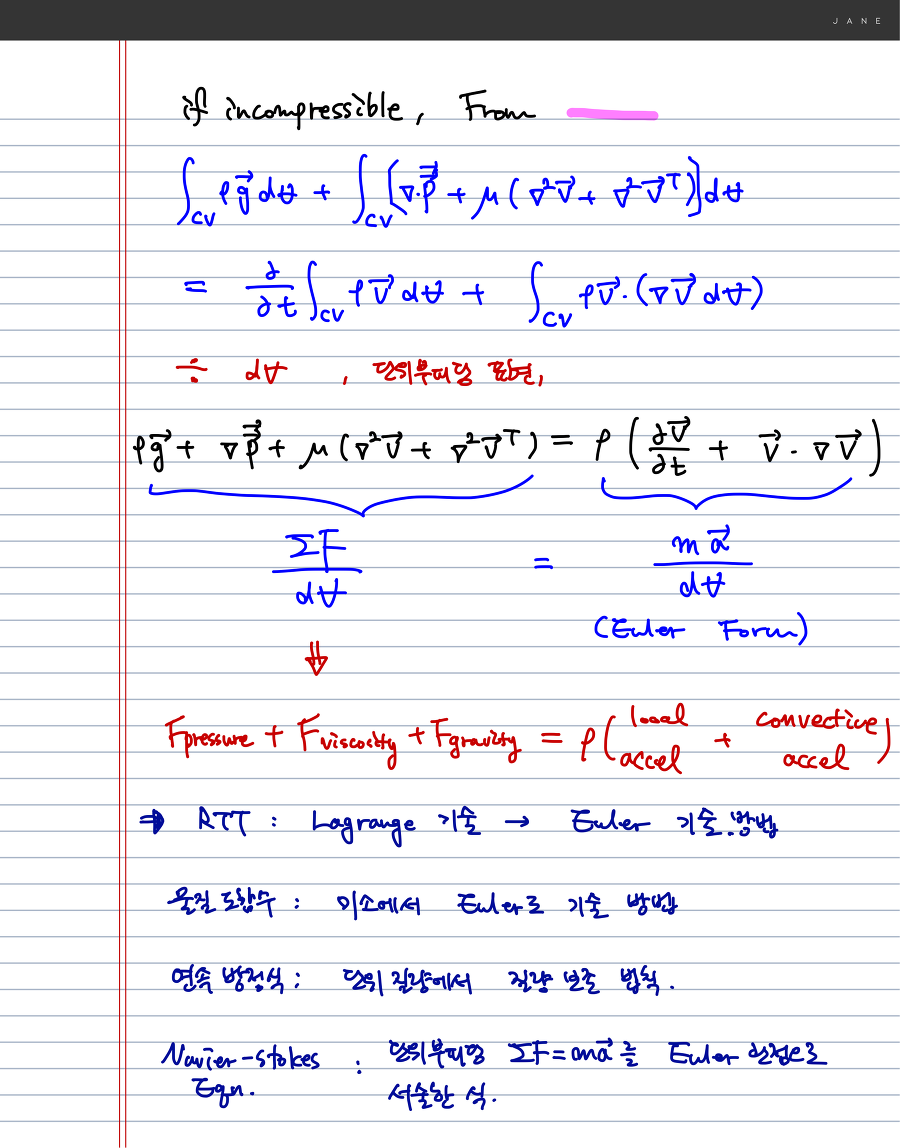 JANE
if incompressible, From
∫_CV ρg⃗ dV̶ + ∫_CV [∇·P⃗⃗ + μ(∇²V⃗ + ∇²V⃗ᵀ)] dV̶
= ∂/∂t ∫_CV ρV⃗ dV̶ + ∫_CV ρV⃗·(∇V⃗ dV̶)
÷ dV̶ , 단위부피당 표현,
ρg⃗ + ∇P⃗⃗ + μ(∇²V⃗ + ∇²V⃗ᵀ) = ρ(∂V⃗/∂t + V⃗·∇V⃗)
ΣF/dV̶ = ma⃗/dV̶
(Euler Form)
⇓
Fpressure + Fviscosity + Fgravity = ρ(local accel + convective accel)
⇒ RTT : Lagrange 기술 → Euler 기술 방법
물질 도함수 : 미소에서 Euler로 기술 방법
연속 방정식 : 단위 질량에서 질량 보존 법칙.
Navier-stokes Eqn. : 단위부피당 ΣF=ma⃗를 Euler 관점으로
서술한 식.